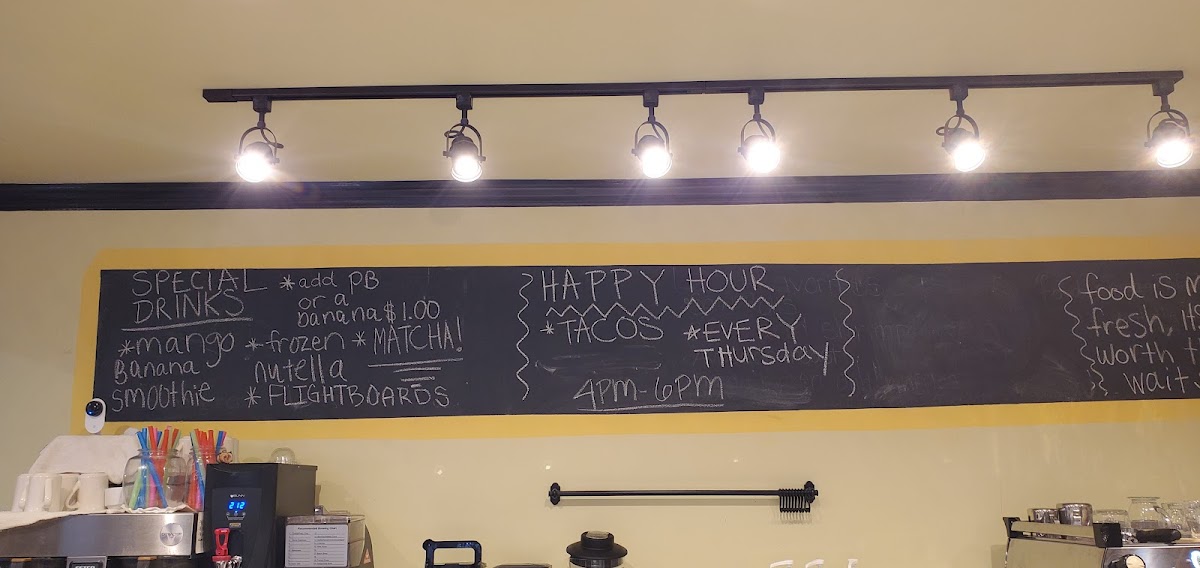 SPECIAL
DRINKS
*add PB
or a
banana $1.00
*mango
Banana
smoothie
*frozen
nutella
*MATCHA!
*FLIGHTBOARDS
HAPPY HOUR
*TACOS
*EVERY
THursday
4PM-6PM
food is
fresh,
worth
wait
BUNN
212